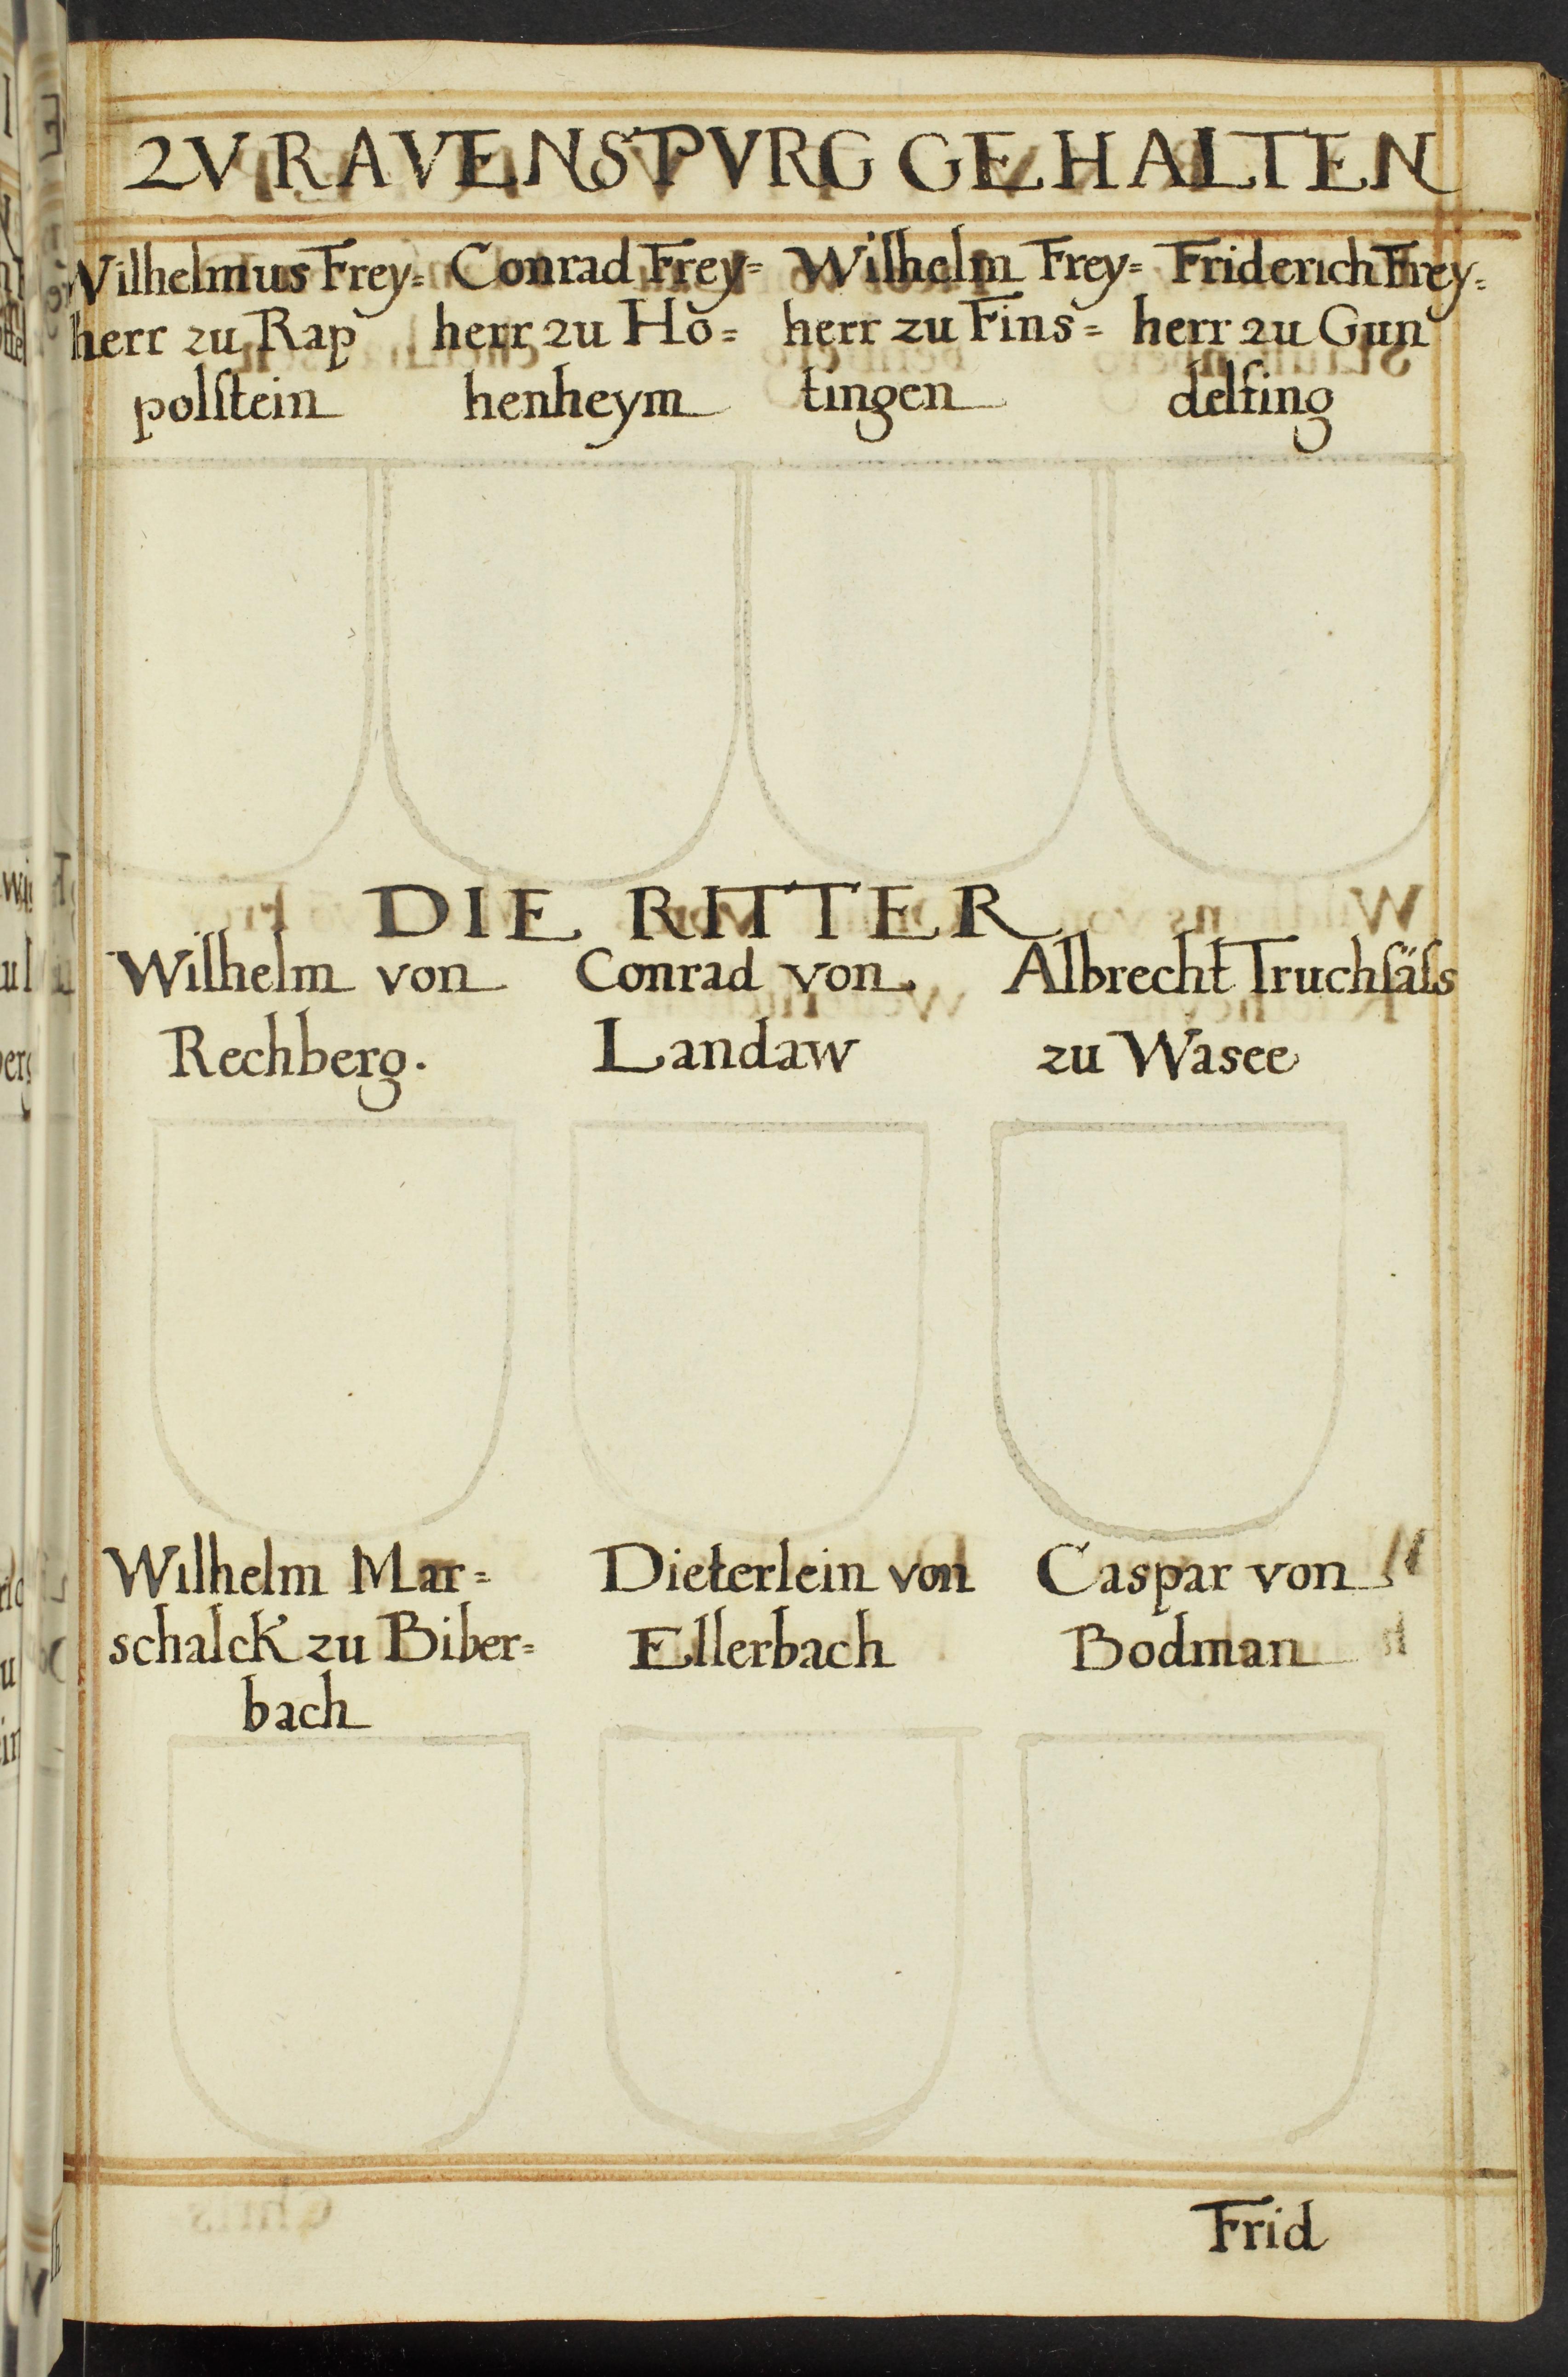 ZV RAVENSPVRG GEHALTEN
Wilhelmus Frey=
herr zu Rap
polſtein
Conrad Frey=
herr zu Hō=
henheym
Wilhelm Frey=
herr zu Fins=
tingen
Friderich Frey=
herr zu Gun
delfing
DIE RITTER
Wilhelm von
Rechberg.
Conrad von
Landaw
Albrecht Truchſäſs
zu Wasee
Wilhelm Mar=
schalck zu Biber=
bach
Dieterlein von
Ellerbach
Caspar von
Bodman
Frid